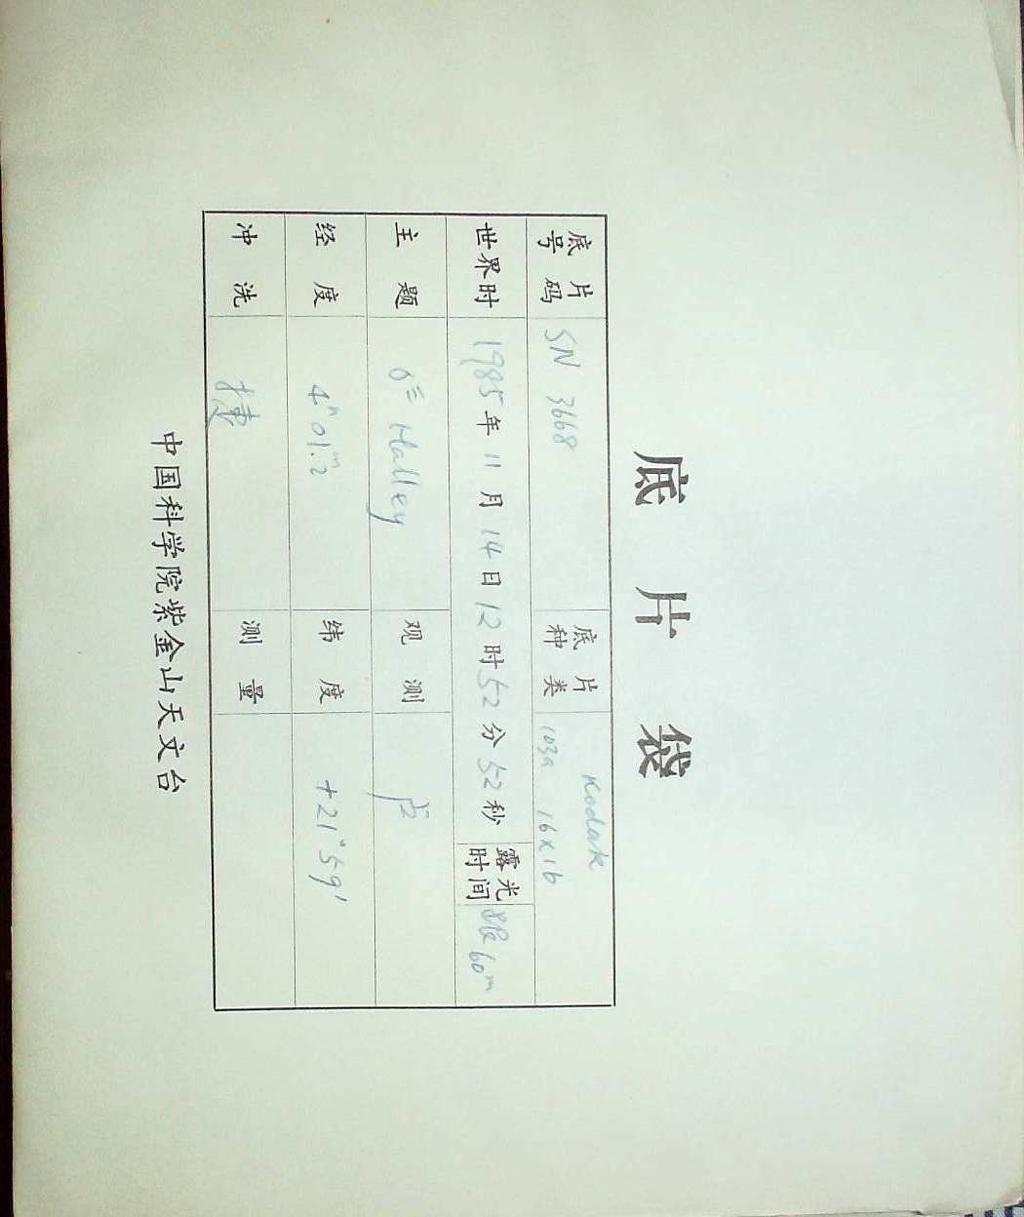 底 片 袋
底片号码 SN 3668 底片种类 Kodak 103a 16x16
世界时 1985年11月14日12时52分52秒 露光时间 跟60m
主题 Halley 观测
经度 4h01.m2 纬度 +21°59'
冲洗 测量
中国科学院紫金山天文台